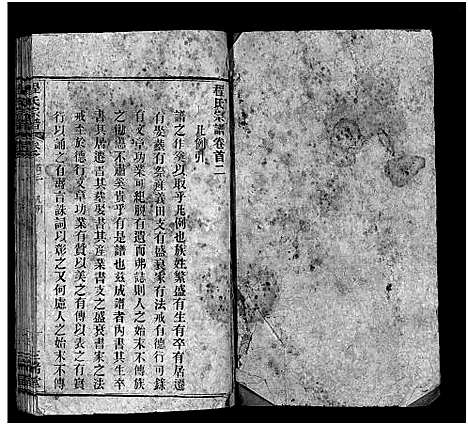 程氏宗譜卷首二
凡例引
譜之作奚以取乎凡例也族姓繁盛有生有卒有居遷
有娶葬有祭產義田支有盛衰家有法戒有德行可錄
有文章功業可紀脫有遺而弗誌則人之始末不傳族
之仙慝不肅奚貴乎有是譜也茲成譜者內書其生卒
書其居遷書其葬娶書其產業書支之盛衰書家之法
戒至於德行文章功業有贊以美之有傳以表之有實
行以誦之有壽言誄詞以彰之又何慮人之始末不傳
程氏宗譜